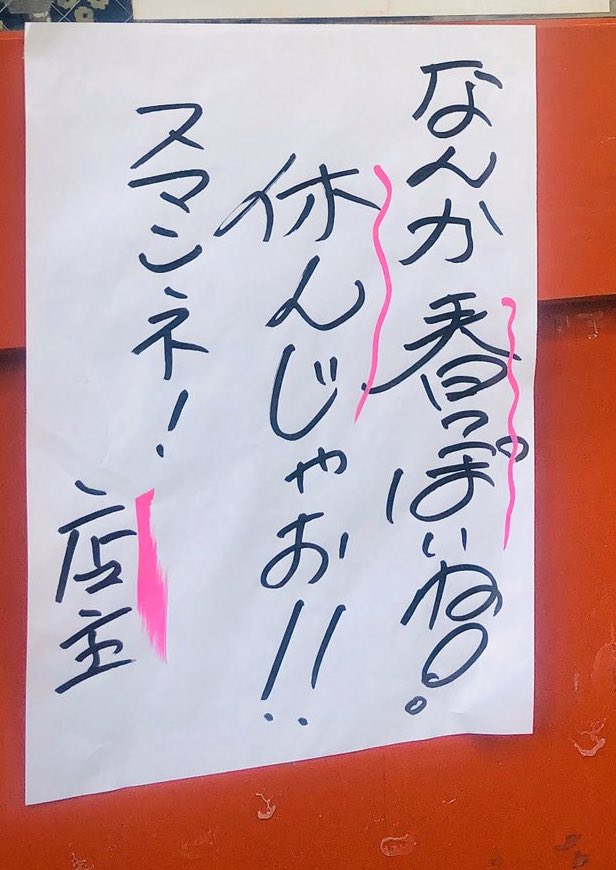 なんか春っぽいね。
休んじゃお!!
スマンネ!
店主